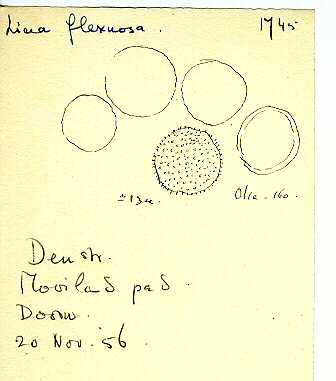 Licea flexuosa. 1745
± 13µ. Olie-160.
Den str.
Mooilas pas.
Doorw.
20 Nov. 56